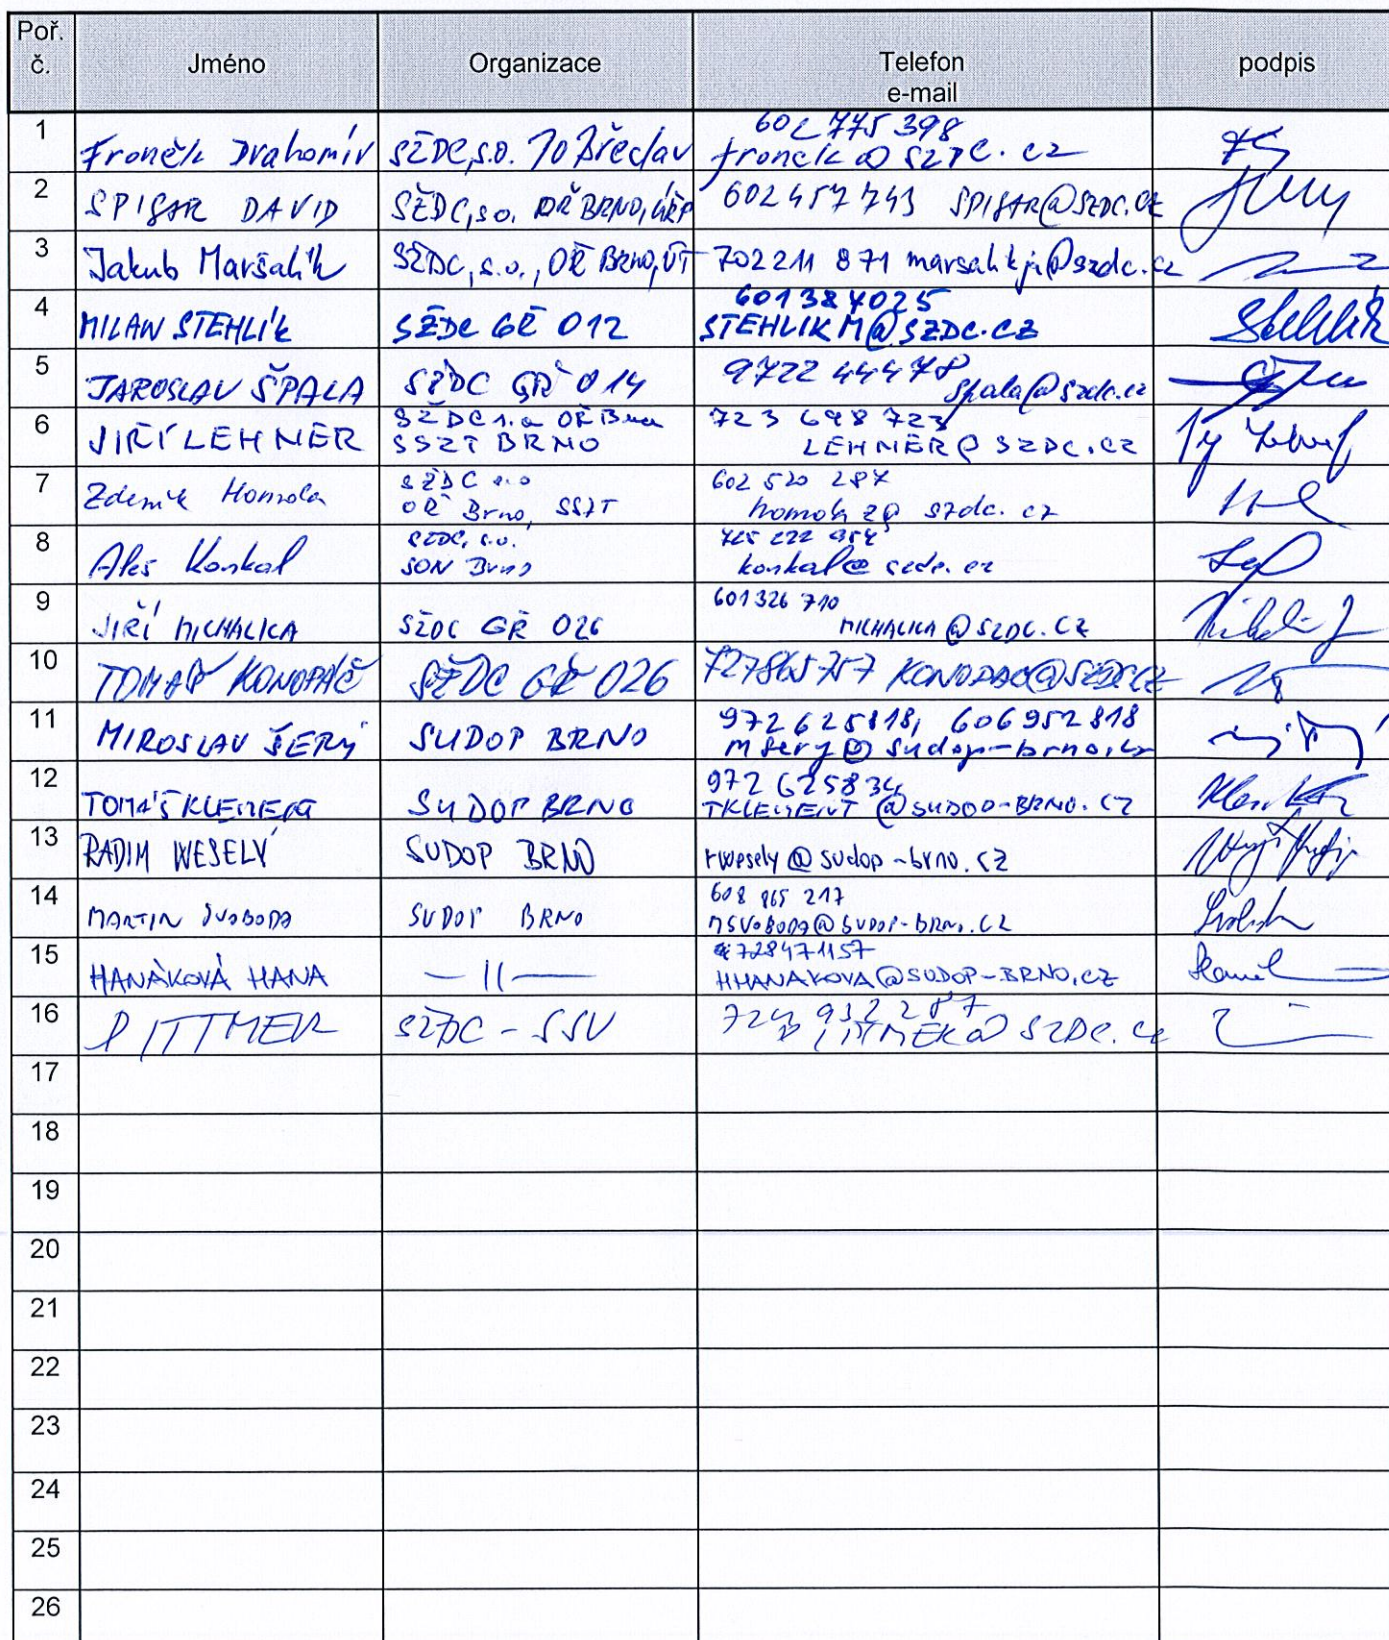 Poř. č. Jméno Organizace Telefon e-mail podpis
1 Froněk Drahomír SŽDC, s.o. PO Břeclav 602 775 398 fronek@szdc.cz
2 SPISAR DAVID SŽDC, s.o. OŘ BRNO, 602 457 743 SPISAR@SZDC.CZ
3 Jakub Maršalík SŽDC, s.o., OŘ Brno, ÚT 702 211 871 marsalikja@szdc.cz
4 MILAN STEHLÍK SŽDC GŘ 012 601384025 STEHLIKM@SZDC.CZ
5 JAROSLAV ŠPALA SŽDC GŘ 014 9722 44478 Spala@szdc.cz
6 JIŘÍ LEHNER SŽDC s.o OŘ Brno SSZT BRNO 723 698 723 LEHNER@SZDC.CZ
7 Zdeněk Homola SŽDC s.o OŘ Brno, SSZT 602 520 287 homola @ szdc.cz
8 Aleš Konkal SŽDC, s.o. SON Brno konkal@szdc.cz
9 JIŘÍ MICHALICA SŽDC GŘ 026 601 326 710 MICHALICA@SZDC.CZ
10 TOMÁŠ KONOPÁČ SŽDC GŘ 026 727865757 KONOPAC@SZDC.CZ
11 MIROSLAV ŠERÝ SUDOP BRNO 972 625818, 606952818 msery@sudop-brno.cz
12 TOMÁŠ KLEMENT SUDOP BRNO 972 625834 TKLEMENT@SUDOP-BRNO.CZ
13 RADIM WESELÝ SUDOP BRNO rwesely@sudop-brno.cz
14 MARTIN SVOBODA SUDOP BRNO 608 865 217 MSVOBODA@SUDOP-BRNO.CZ
15 HANÁKOVÁ HANA — || — 728471157 HHANAKOVA@SUDOP-BRNO.CZ
16 DITTMER SŽDC - SSV 724 932 287 @SZDC.CZ
17
18
19
20
21
22
23
24
25
26